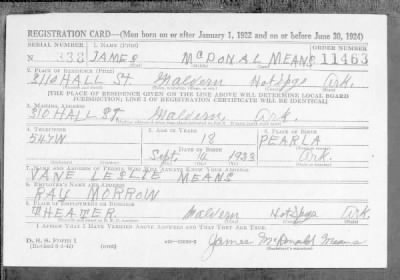 REGISTRATION CARD—(Men born on or after January 1, 1922 and on or before June 30, 1924)
SERIAL NUMBER 1. NAME (Print) ORDER NUMBER
N 338 JAMES McDONAL MEANS 11463
2. PLACE OF RESIDENCE (Print)
HALL St Malvern Hot Spgs Ark.
[THE PLACE OF RESIDENCE GIVEN ON THE LINE ABOVE WILL DETERMINE LOCAL BOARD
JURISDICTION; LINE 2 OF REGISTRATION CERTIFICATE WILL BE IDENTICAL]
3. MAILING ADDRESS
810 HALL ST Malvern Ark.
4. TELEPHONE 5. AGE IN YEARS 6. PLACE OF BIRTH
547W 18 PEARLA
DATE OF BIRTH
Sept. Ark.
7. NAME AND ADDRESS OF PERSON WHO WILL ALWAYS KNOW YOUR ADDRESS
VANE LESLIE MEANS
8. EMPLOYER'S NAME AND ADDRESS
RAY MORROW
9. PLACE OF EMPLOYMENT OR BUSINESS
THEATER Malvern Hot Spgs Ark.
I AFFIRM THAT I HAVE VERIFIED ABOVE ANSWERS AND THAT THEY ARE TRUE.
D. S. S. FORM 1
(over) James McDonald Means